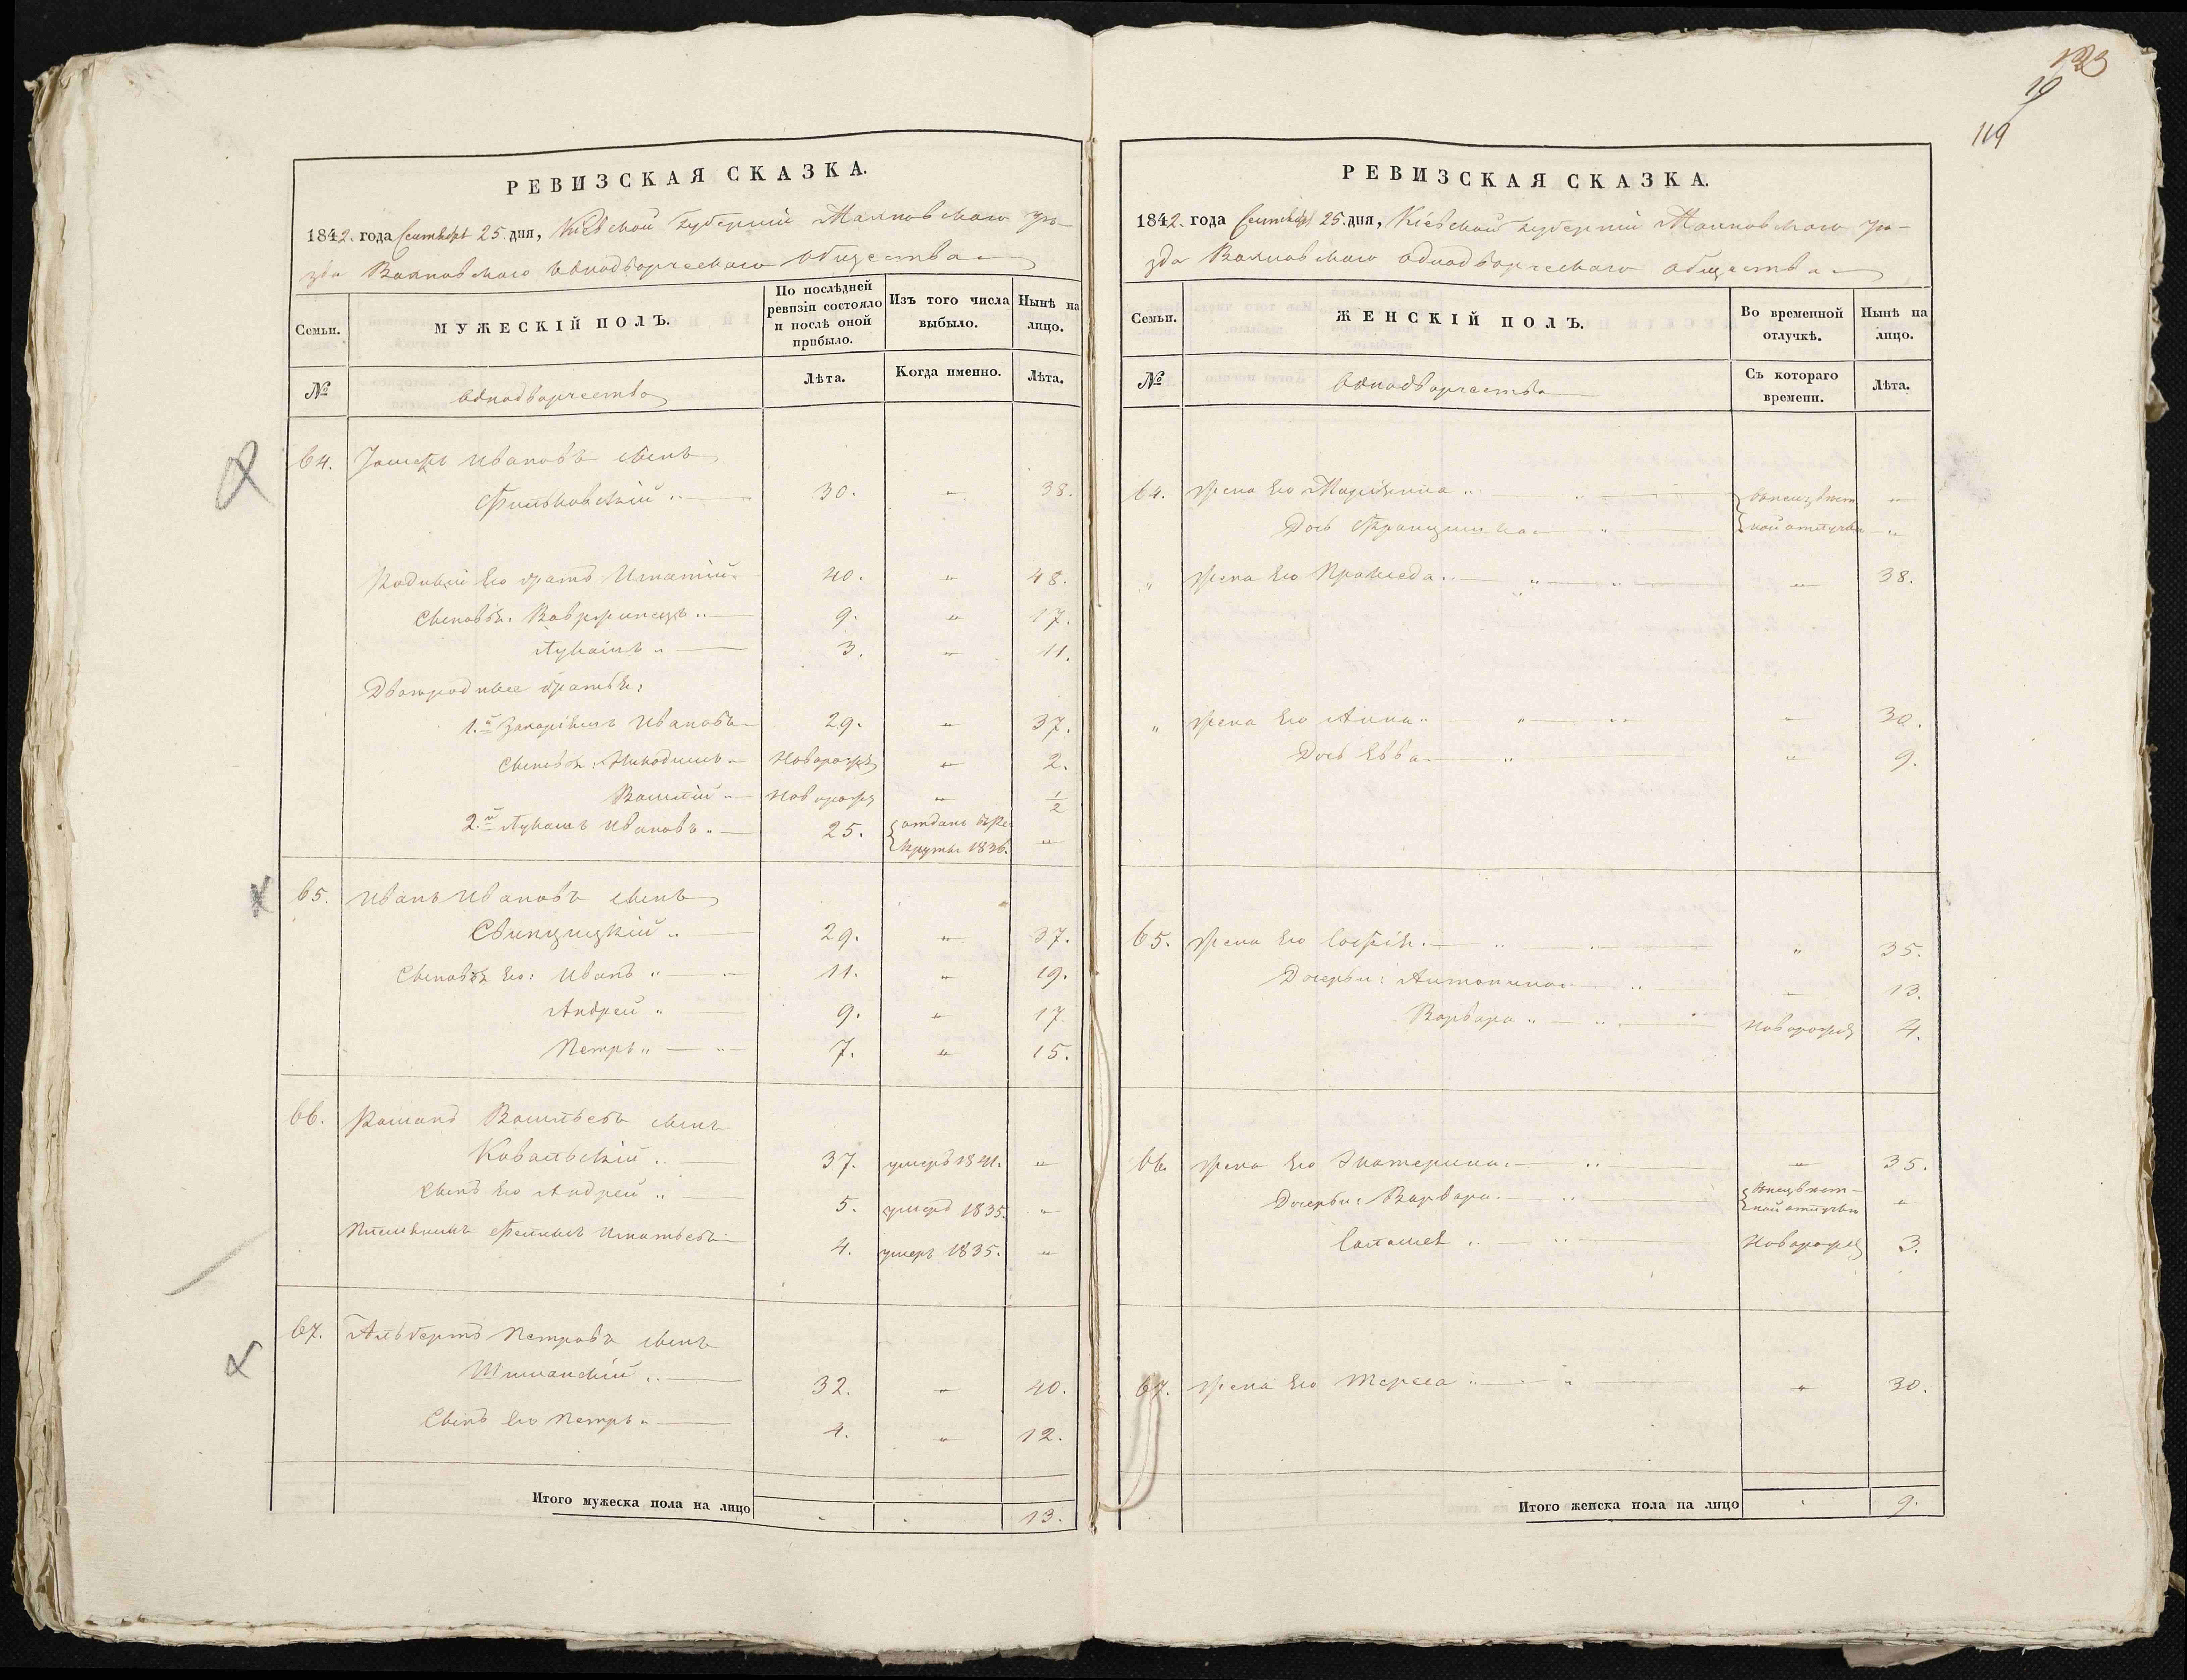 123
19
119
РЕВИЗСКАЯ СКАЗКА.
1842. года Сентября 25. дня, Кіевской Губерніи Махновскаго уѣ-
зда Вахновскаго Однодворческаго Общества
Семьи.
МУЖЕСКІЙ ПОЛЪ.
По послѣдней ревизіи состояло и послѣ оной прибыло.
Изъ того числа выбыло.
Нынѣ на лицо.
№
Однодворчества
Лѣта.
Когда именно.
Лѣта.
64. Іосифъ Ивановъ сынъ
Фильковскій 30. " 38.
Родный Его братъ Игнатій 40. " 48.
Сыновья: Вавринецъ 9. " 17.
Лукашъ 3. " 11.
Двоюродные братья:
1.й Захаріяшъ Ивановъ 29. " 37.
Сыновья: Никодимъ Новорожд " 2.
Василій Новорожд " 1/2
2.й Лукашъ Ивановъ 25. отданъ въ Ре- "
круты 1836.
65. Иванъ Ивановъ сынъ
Свинцицкій 29. " 37.
Сыновья Его: Иванъ 11. " 19.
Андрей 9. " 17
Петръ 7. " 15.
66. Романъ Васильевъ сынъ
Ковальскій 37. умеръ 1841. "
Сынъ Его Андрей 5. умеръ 1835. "
Племянникъ Феликсъ Игнатьевъ 4. умеръ 1835. "
67. Альбертъ Петровъ сынъ
Шиманскій 32. " 40.
Сынъ Его Петръ 4. " 12.
Итого мужеска пола на лицо 13.
РЕВИЗСКАЯ СКАЗКА.
1842. года Сентября 25. дня, Кіевской Губерніи Махновскаго уѣ-
зда Вахновскаго Однодворческаго Общества
Семьи.
ЖЕНСКІЙ ПОЛЪ.
Во временной отлучкѣ.
Нынѣ на лицо.
№
Однодворчества
Съ котораго времени.
Лѣта.
64. Жена Его Маріянна въ неизвѣст- "
Дочь Францишка ной отлучкѣ "
" Жена Его Пракседа " 38.
" Жена Его Анна " 30.
Дочь Евва " 9.
65. Жена Его Софія " 35.
Дочерьи: Антонина 13.
Варвара Новорожд 4.
66. Жена Его Екатерина " 35.
Дочерьи: Варвара въ неизвѣст- "
ной отлучкѣ
Саломея Новорожд 3.
67. Жена Его Тереса " 30.
Итого женска пола на лицо 9.